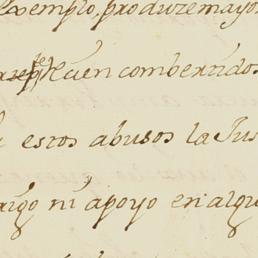 exemplo, produze mayor
se ven combertidos
estos abusos la Jus
aigo ni apoyo en algu